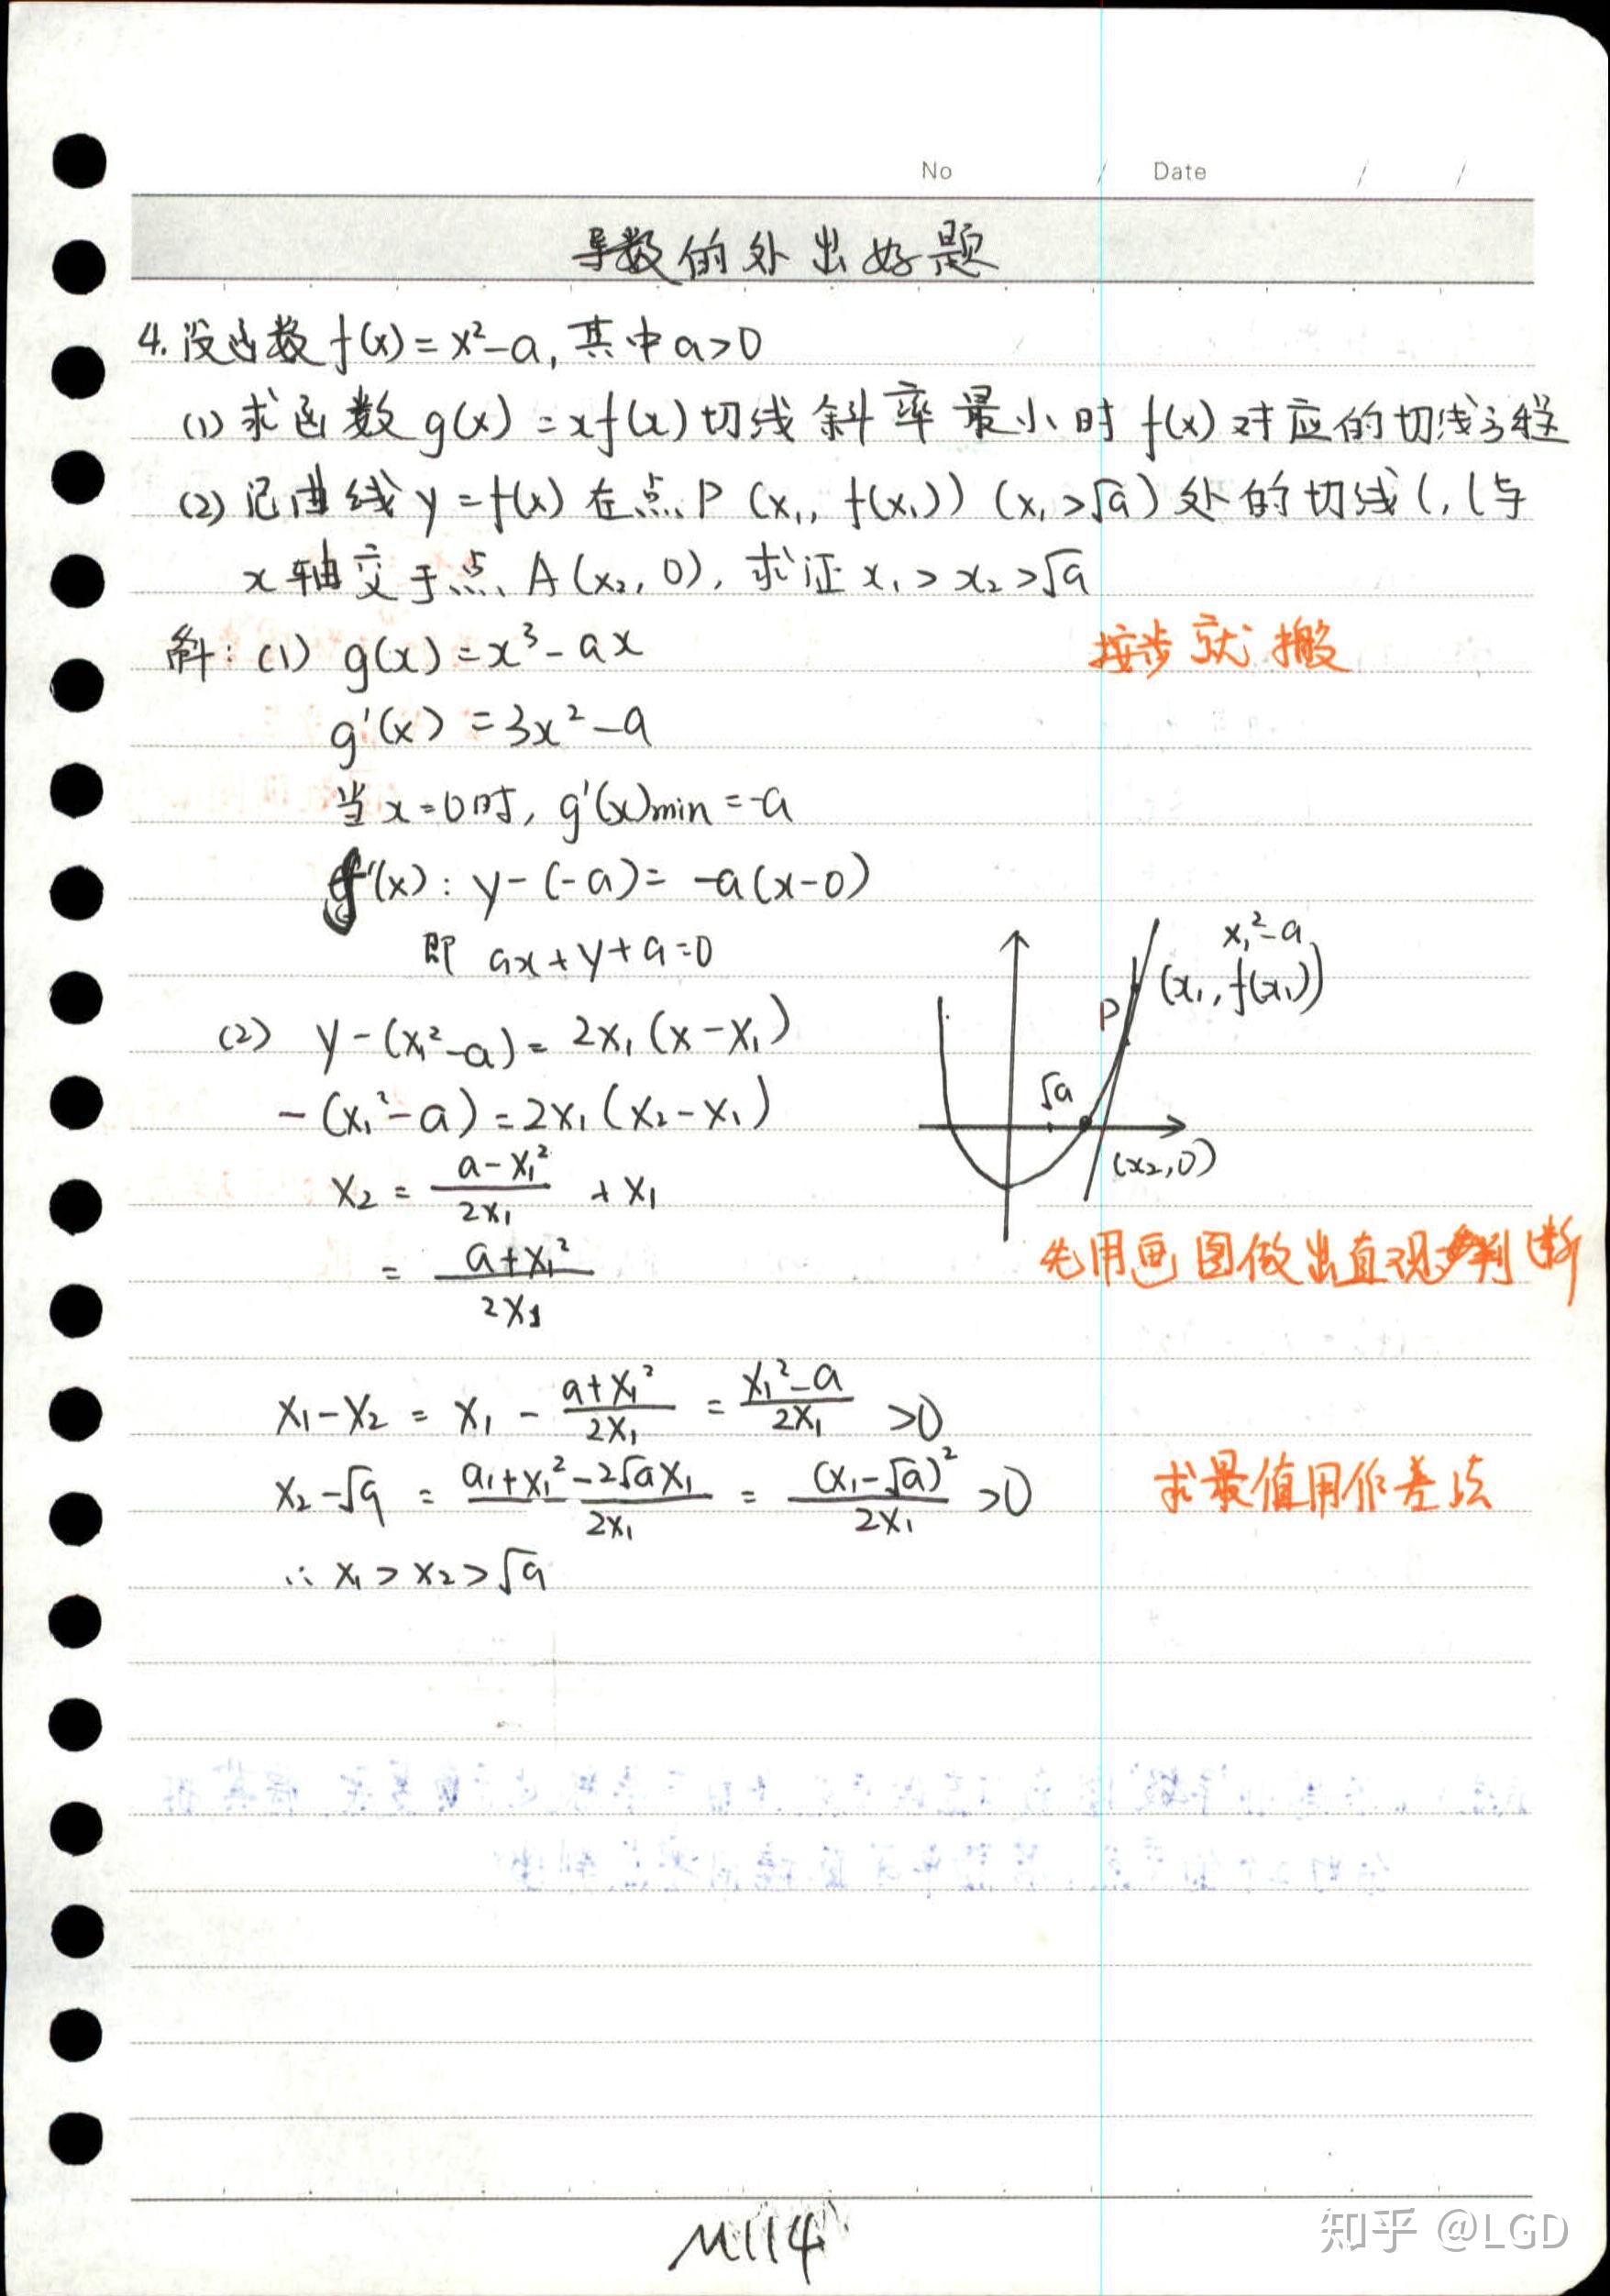 No / Date / /
导数的外出好题
4. 设函数 f(x) = x²-a, 其中 a>0
(1) 求函数 g(x) = xf(x) 切线斜率最小时 f(x) 对应的切线方程
(2) 记曲线 y = f(x) 在点 P (x₁, f(x₁)) (x₁ > √a) 处的切线 l, l 与
x 轴交于点 A (x₂, 0), 求证 x₁ > x₂ > √a
解: (1) g(x) = x³ - ax
按步就搬
g'(x) = 3x² - a
当 x = 0 时, g'(x)min = -a
f'(x): y - (-a) = -a(x-0)
即 ax + y + a = 0
x₁² - a
(x₁, f(x₁))
P
√a
(x₂, 0)
(2) y - (x₁² - a) = 2x₁(x - x₁)
-(x₁² - a) = 2x₁(x₂ - x₁)
x₂ = (a - x₁²)/(2x₁) + x₁
= (a + x₁²)/(2x₁)
先用画图做出直观判断
x₁ - x₂ = x₁ - (a + x₁²)/(2x₁) = (x₁² - a)/(2x₁) > 0
x₂ - √a = (a₁ + x₁² - 2√a x₁)/(2x₁) = (x₁ - √a)²/(2x₁) > 0
求最值用作差法
∴ x₁ > x₂ > √a
M114
知乎 @LGD